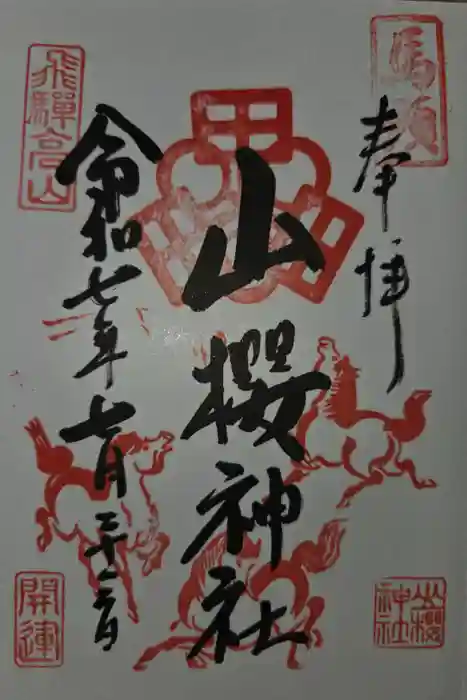 馬頭
奉拝
山櫻神社
山櫻神社
飛驒高山
令和七年七月二十六日
開運